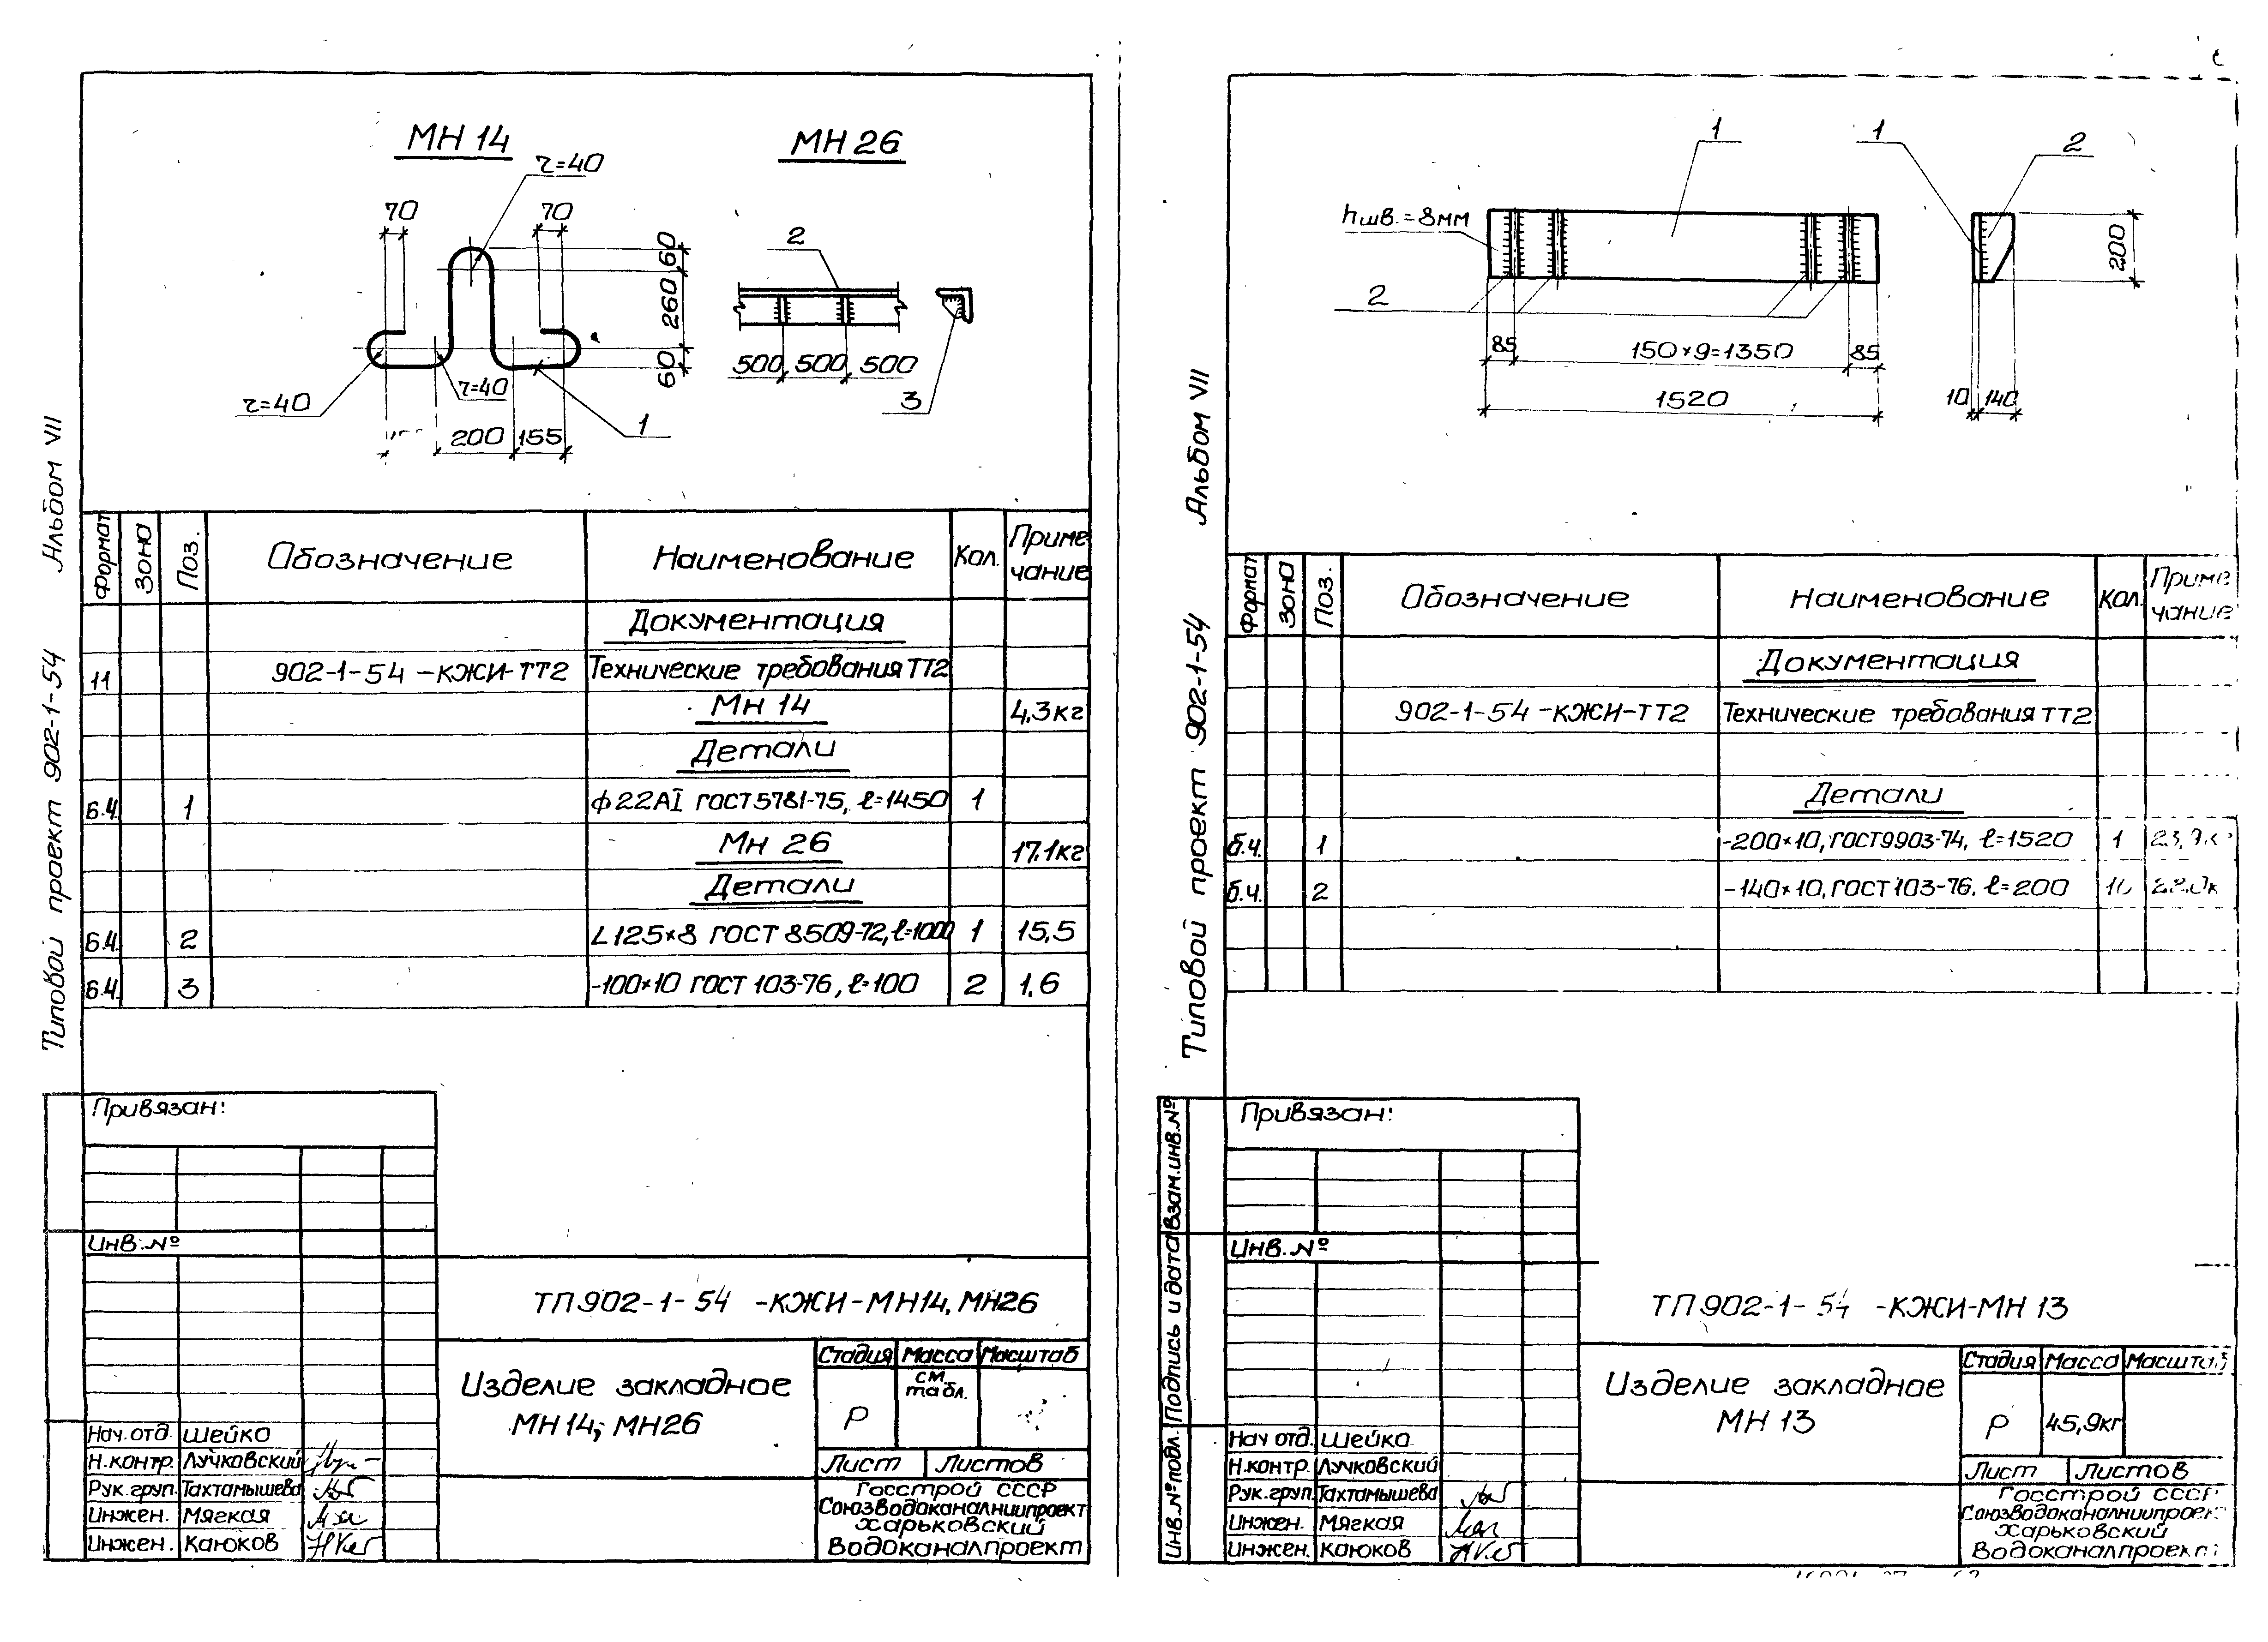 МН 14
МН 26
r=40
70
70
60
260
60
r=40
r=40
200
155
1
2
500
500
500
3
Типовой проект 902-1-54 Альбом VII
Формат Зона Поз. Обозначение Наименование Кол. Приме
чание
Документация
11 902-1-54-КЖИ-ТТ2 Технические требования ТТ2
Мн 14 4,3кг
Детали
Б.Ч. 1 ф22АI ГОСТ 5781-75, ℓ=1450 1
Мн 26 17,1кг
Детали
Б.Ч. 2 L125×8 ГОСТ 8509-72, ℓ=1000 1 15,5
Б.Ч. 3 -100×10 ГОСТ 103-76, ℓ=100 2 1,6
Привязан:
Инв.№
ТП902-1-54 -КЖИ-МН14, МН26
Изделие закладное
МН14; МН26
Стадия Масса Масштаб
Р см. табл.
Лист Листов
Госстрой СССР
Союзводоканалниипроект
Харьковский
Водоканалпроект
Нач.отд. Шейко
Н.контр. Лучковский
Рук.груп. Тахтамышева
Инжен. Мягкая
Инжен. Каюков
1
1
2
hшв.=8мм
2
200
85
150×9=1350
85
1520
10
140
Типовой проект 902-1-54 Альбом VII
Формат Зона Поз. Обозначение Наименование Кол. Приме
чание
Документация
902-1-54-КЖИ-ТТ2 Технические требования ТТ2
Детали
б.ч. 1 -200×10, ГОСТ 9903-74, ℓ=1520 1
б.ч. 2 -140×10, ГОСТ 103-76, ℓ=200
Привязан:
Инв.№
Инв.№подл. Подпись и дата Взам.инв.№
ТП902-1-54 -КЖИ-МН 13
Изделие закладное
МН 13
Стадия Масса Масштаб
Р 45,9кг
Лист Листов
Госстрой СССР
Союзводоканалниипроект
Харьковский
Водоканалпроект
Нач отд. Шейко
Н.контр. Лучковский
Рук.груп. Тахтамышева
Инжен. Мягкая
Инжен. Каюков